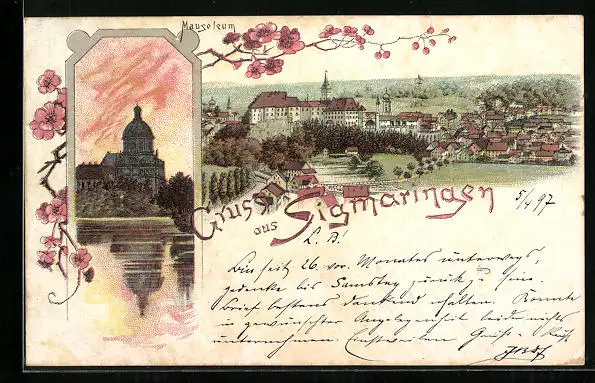 Mausoleum
Gruss
aus
Sigmaringen
5/4 97
L. B!
Bin seit 26. vor. Monates unterwegs,
gedenke bis Samstag zurück z. sein
Brief bestens dankend erhalten. Konnte
in gewünschter Angelegenheit leider nichts
unternehmen. Einstweilen Gruß